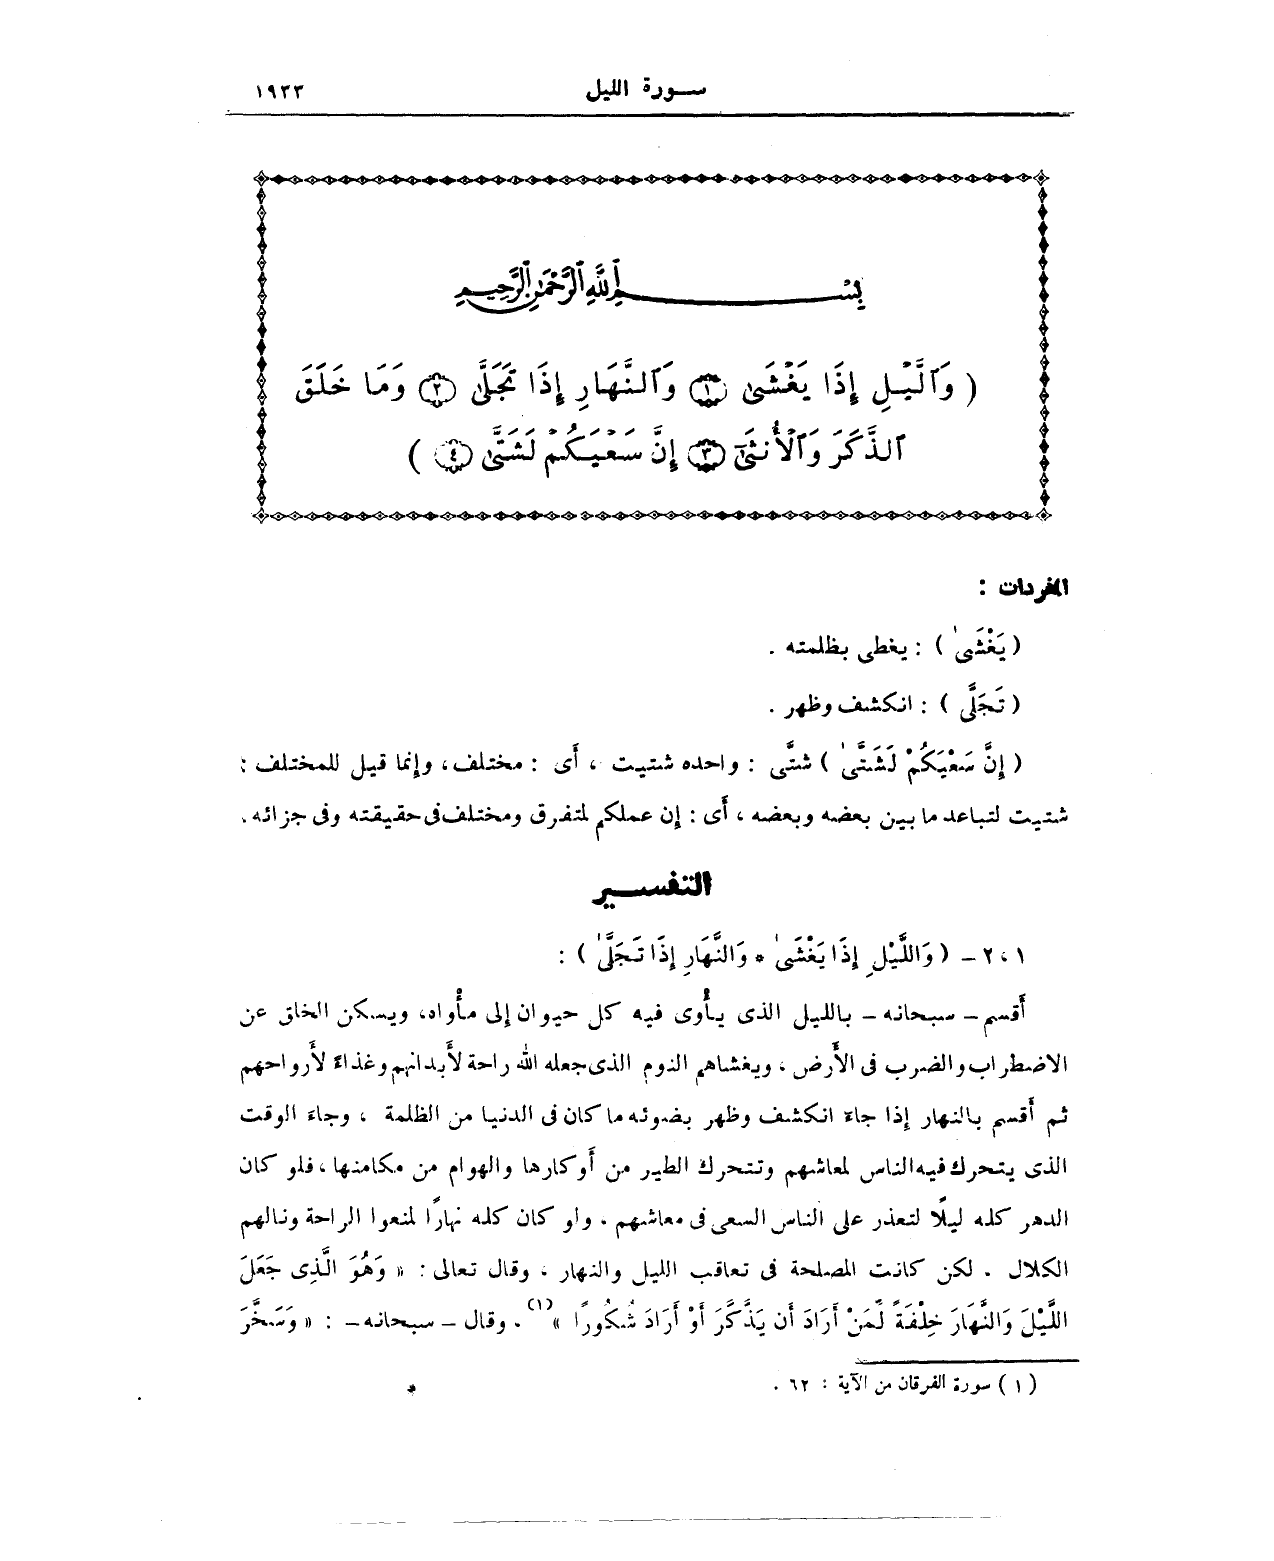 سورة الليل ١٩٣٣
بِسْمِ ٱللَّهِ ٱلرَّحْمَٰنِ ٱلرَّحِيمِ
( وَٱلَّيْلِ إِذَا يَغْشَىٰ ١ وَٱلنَّهَارِ إِذَا تَجَلَّىٰ ٢ وَمَا خَلَقَ
ٱلذَّكَرَ وَٱلْأُنثَىٰٓ ٣ إِنَّ سَعْيَكُمْ لَشَتَّىٰ ٤ )
المفردات :
( يَغْشَىٰ ) : يغطى بظلمته .
( تَجَلَّى ) : انكشف وظهر .
( إِنَّ سَعْيَكُمْ لَشَتَّىٰ ) شتَّى : واحده شتيت ، أَى : مختلف، وإنما قيل للمختلف :
شتيت لتباعد ما بين بعضه وبعضه ، أَى : إن عملكم لمتفرق ومختلف فى حقيقته وفى جزائه .
التفسير
١ ، ٢ - ( وَاللَّيْلِ إِذَا يَغْشَىٰ * وَالنَّهَارِ إِذَا تَجَلَّىٰ ) :
أَقسم - سبحانه - بالليل الذى يأْوى فيه كل حيوان إلى مأْواه، ويسكن الخلق عن
الاضطراب والضرب فى الأَرض ، ويغشاهم النوم الذى جعله الله راحة لأَبدانهم وغذاءً لأَرواحهم
ثم أَقسم بالنهار إذا جاءَ انكشف وظهر بضوئه ما كان فى الدنيا من الظلمة ، وجاءَ الوقت
الذى يتحرك فيه الناس لمعاشهم وتتحرك الطير من أَوكارها والهوام من مكامنها ، فلو كان
الدهر كله ليلًا لتعذر على الناس السعى فى معاشهم . ولو كان كله نهارًا لمنعوا الراحة ونالهم
الكلال . لكن كانت المصلحة فى تعاقب الليل والنهار ، وقال تعالى : « وَهُوَ الَّذِى جَعَلَ
اللَّيْلَ وَالنَّهَارَ خِلْفَةً لِّمَنْ أَرَادَ أَن يَذَّكَّرَ أَوْ أَرَادَ شُكُورًا »(١) . وقال - سبحانه - : « وَسَخَّرَ
( ١ ) سورة الفرقان من الآية : ٦٢ .